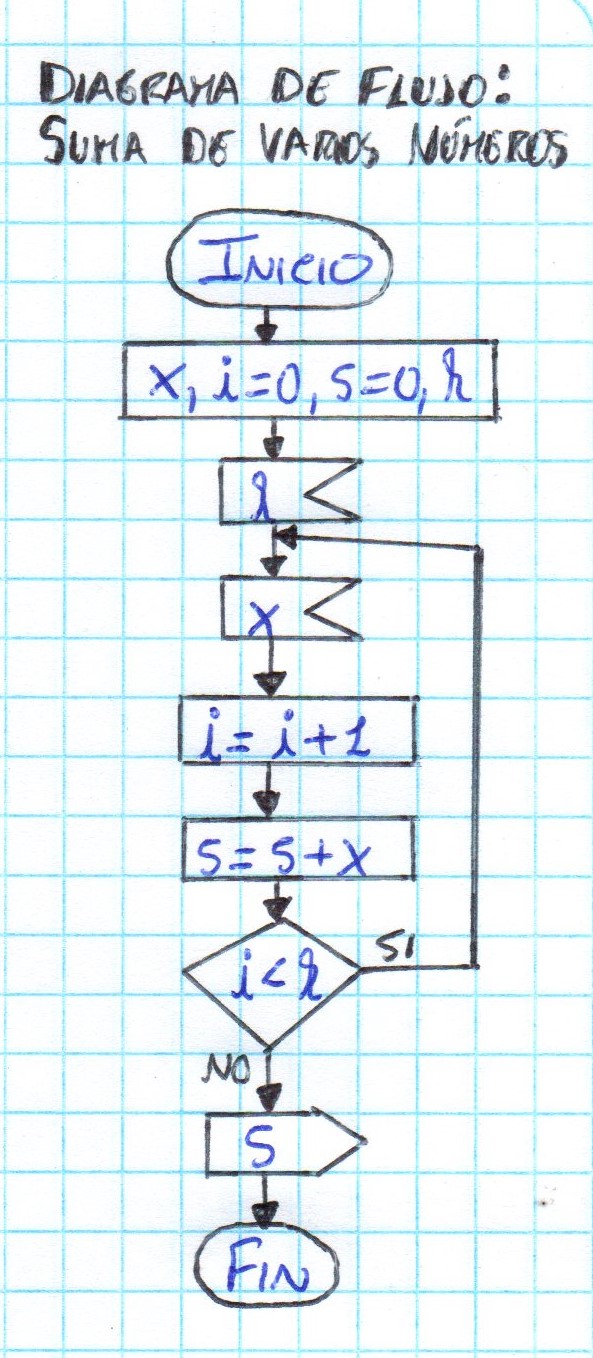 DIAGRAMA DE FLUJO:
SUMA DE VARIOS NÚMEROS
INICIO
x, i=0, s=0, k
k
x
i = i + 1
s = s + x
i < k
SI
NO
S
FIN